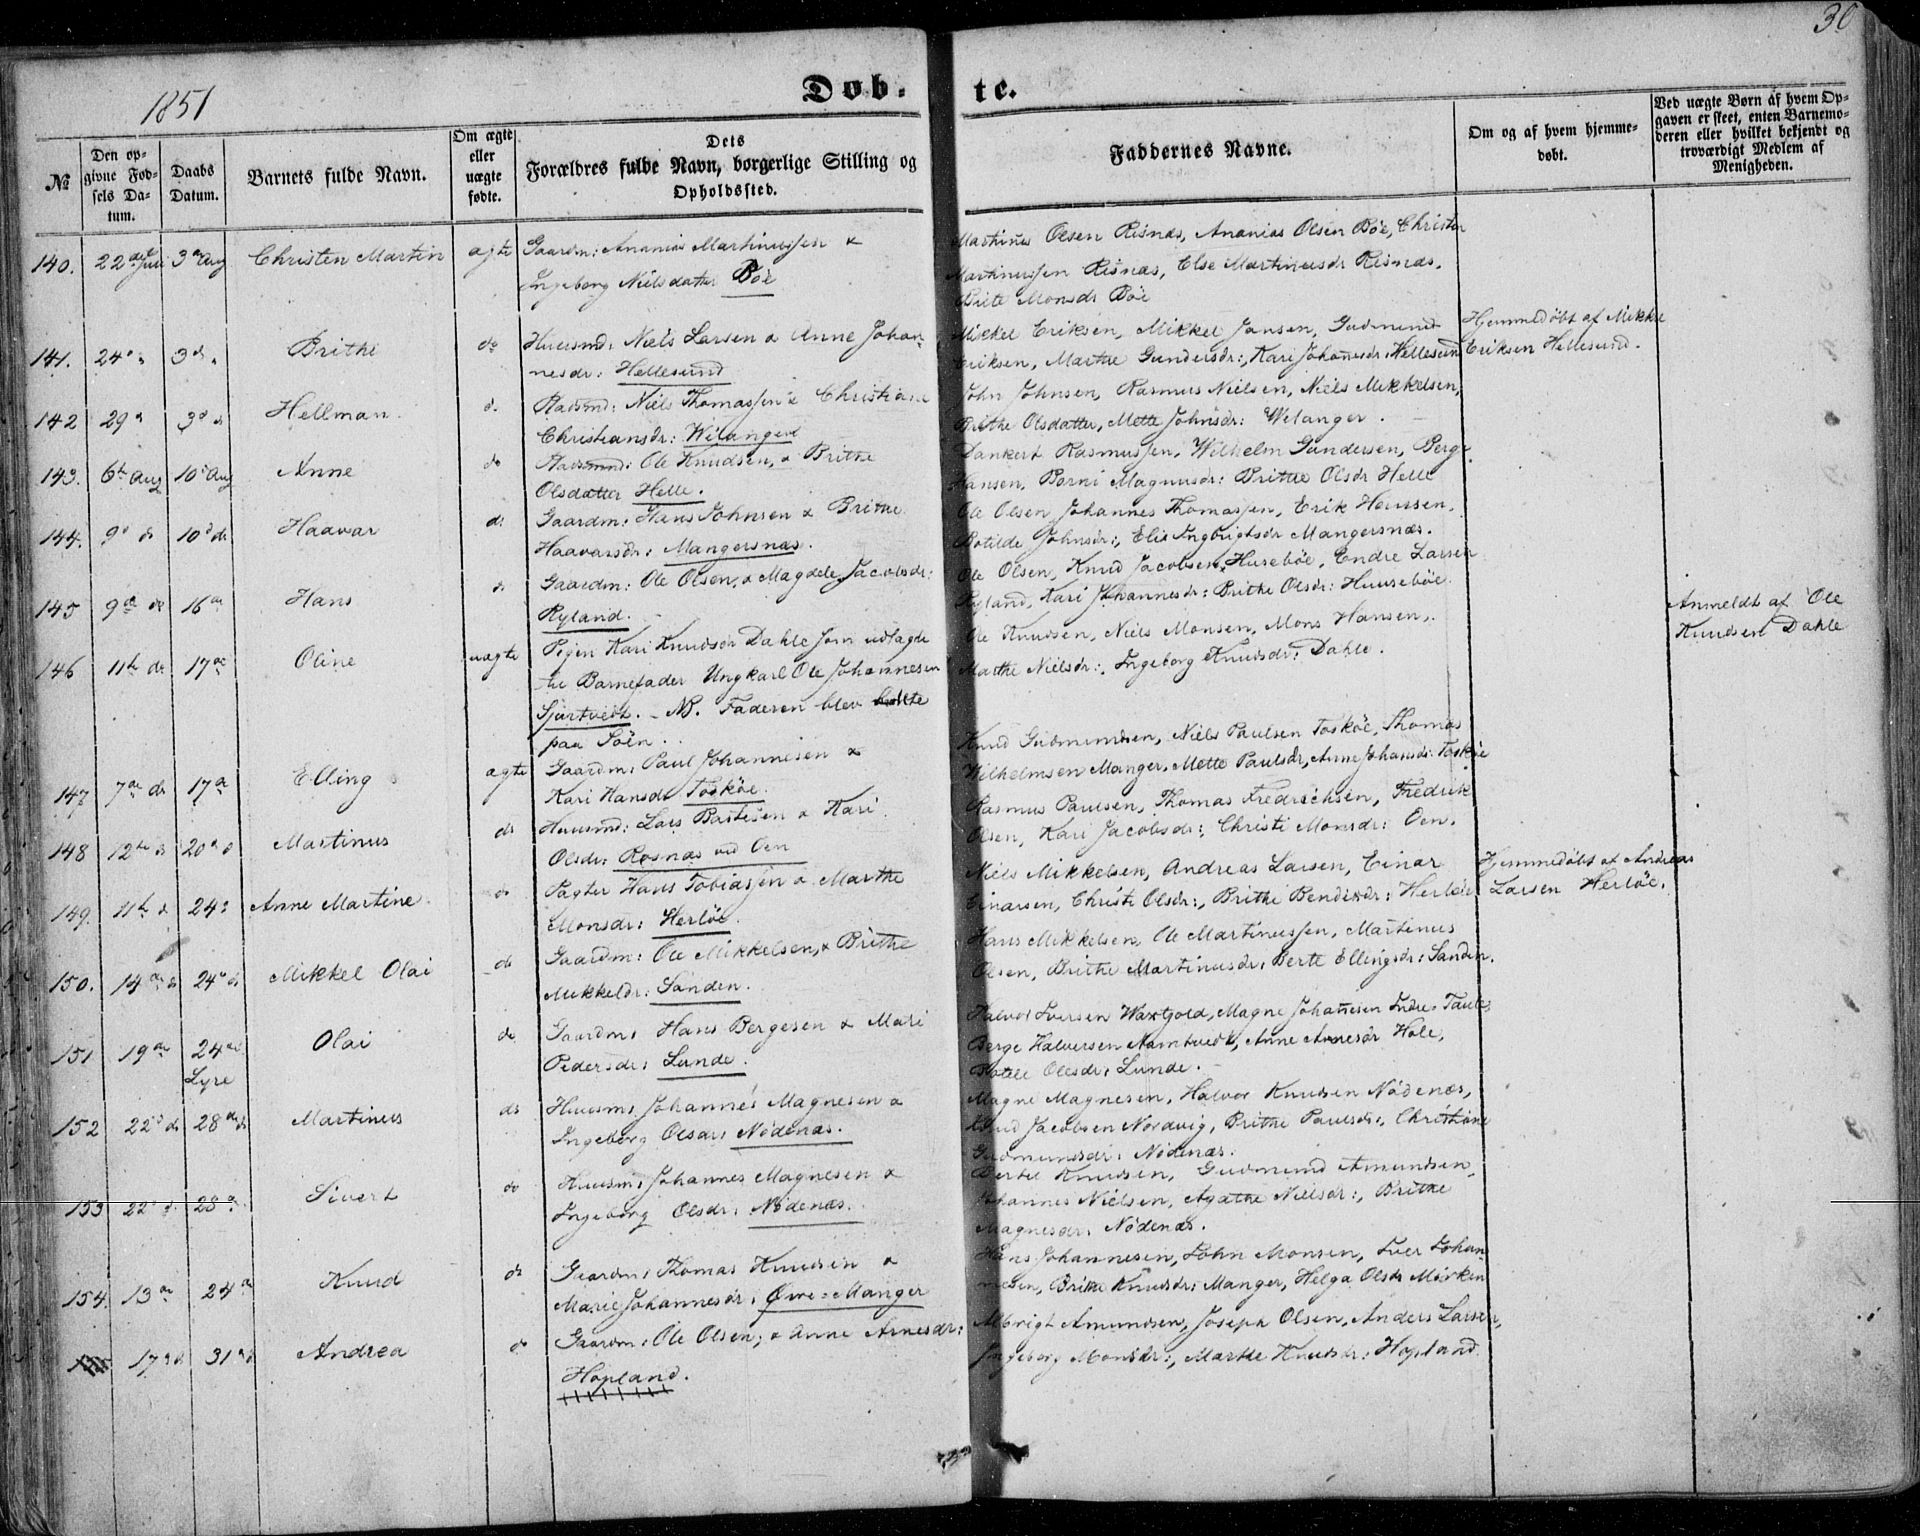 30
1851
Døb-
te.
№
Den op-
givne Fød-
sels Da-
tum.
Daabs
Datum.
Barnets fulde Navn.
Om ægte
eller
uægte
fødte.
Dets
Forældres fulde Navn, borgerlige Stilling og
Opholdssted.
Faddernes Navne.
Om og af hvem hjemme-
døbt.
Ved uægte Børn af hvem Op-
gaven er skeet, enten Barnemo-
deren eller hvilket bekjendt og
troværdigt Medlem af
Menigheden.
140. 22de Juli 3de Aug Christen Martin ægte Gaardm: Ananias Martinussen &
Ingeborg Nielsdatter Bøe
Martinus Olsen Risnæs, Ananias Olsen Bøe, Christen
Martinussen Risnæs, Else Martinusdr Risnæs.
Brite Monsdr Bøe
141. 24d d 3d d Brithe do Huusmd: Niels Larsen & Anne Johan-
nesdr: Hellesund
Mikkel Eriksen, Mikkel Jansen, Gudmund
Eriksen, Marthe Gundersdr:, Kari Johanesdr: Hellesund
Hjemmedøbt af Mikkel
Eriksen Hellesund.
142 29d 3d d Hellman. d. Stadsmd: Niels Thomassen & Christiane
Christiansdr: Wilanger
John Johnsen, Rasmus Nielsen, Niels Mikkelsen,
Brithe Olsdatter, Mette Johnsdr: Welanger.
143. 6te Aug 10d Aug Anne do Stadsmd: Ole Knudsen, & Brithe
Olsdatter Helle.
Dankert Rasmussen, Wilhelm Gundersen, Berge
Hansen, Borni Magnusdr: Brithe Olsdr Helle
144. 9d d 10d ds Haavar d: Gaardm: Hans Johnsen & Brithe
Haavarsdr: Mangersnæs.
Ole Olsen Johannes Thomassen, Erik Hanssen,
Botilde Johnsdr:, Elis Ingbrigtsdr Mangersnæs.
145 9de ds 16de Hans d Gaardm: Ole Olsen, & Magdele Jacobsdr:
Ryland.
Ole Olsen, Knud Jacobsen, Husebøe, Endre Larsen
Ryland, Kari Johannesdr: Brithe Olsdr: Huusebøe
146 11te ds 17de Oline uægte Pigen Kari Knudsdr Dahle som udlagde
til Barnefader Ungkarl Ole Johannesen
Sjurtvedt. - NB. Faderen blev borte
paa Søen.
Ole Knudsen, Niels Monsen, Mons Hansen,
Marthe Nielsdr:, Ingeborg Knudsdr: Dahle.
Anmeldt af Ole
Knudsen Dahle
147 7de ds 17d Elling ægte Gaardm: Paul Johannesen &
Kari Hansdr Toskøe.
Knud Gudmundsen, Niels Paulsen Toskøe, Thomas
Wilhelmsen Manger, Mette Paulsdr, Anne Johansdr: Toskøe
148 12te d 20d d Martinus ds Huusmd: Lars Bastesen & Kari
Olsdr: Rosnæs ved Oen
Rasmus Paulsen, Thomas Fredrichsen, Fredrik
Olsen, Kari Jacobsdr:, Christi Monsdr: Oen.
149. 11te d 24d Anne Martine. d Pagter Hans Tobiassen & Marthe
Monsdr: Herløe.
Niels Mikkelsen, Andreas Larsen, Einar
Einarsen, Christi Olsdr:, Brithe Bendixdr: Herløe.
Hjemmedøbt af Andreas
Larsen Herløe.
150. 14de d 24d d Mikkel Olai do Gaardm: Ole Mikkelsen, & Brithe
Mikkeldr: Sanden.
Hans Mikkelsen, Ole Martinussen, Martinus
Olsen, Brithe Martinusdr: Berte Ellingsdr: Sanden.
151 19de 24de
Lyre Olai do Gaardm: Hans Bergesen & Mari
Pedersdr: Lunde.
Halvor Iversen Waxtgold, Magne Johannesen Indre Taule,
Berge Halversen Namtvedt, Anne Arnesdr Hole,
Botele Olesdr: Lunde.
152 22d ds 28de ds Martinus ds Huusm: Johannes Magnesen &
Ingeborg Olsdr: Nødenæs.
Magne Magnesen, Halvor Knudsen Nødenæs,
Knud Jacobsen Nordvig, Brithe Paulsdr:, Christiane
Gudmundsdr: Nødenæs.
153 22d d 28d Sivert do Huusm: Johannes Magnesen &
Ingeborg Olsdr: Nødenæs.
Bertel Knudsen, Gudmund Amundsen,
Johannes Nielsen, Agathe Nielsdr:, Brithe
Magnesdr: Nødenæs.
154. 13de 24d Knud do Gaardm: Thomas Knudsen &
Marie Johannesdr: Øvre-Manger
Hans Johannesen, John Monsen, Iver Johan-
nesen, Brithe Knudsdr: Manger, Helga Olsdr Mørken
17d d 31d d Andrea do Gaardm: Ole Olsen, & Anne Arnesdr:
Hopland.
Albrigt Amundsen, Joseph Olsen, Anders Larsen,
Ingeborg Monsdr:, Marthe Knudsdr: Hopland.